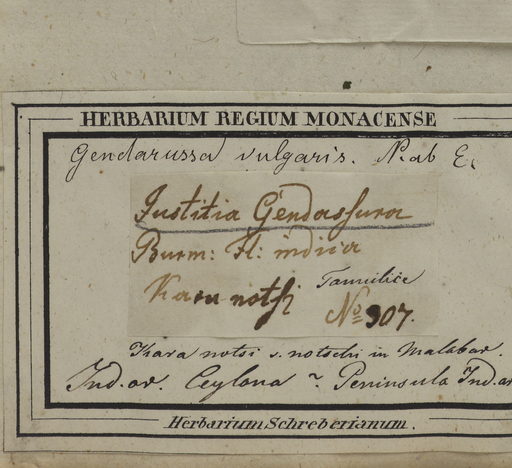 HERBARIUM REGIUM MONACENSE
Gendarussa vulgaris. N. ab E.
Justitia Gendassura
Burm: Fl: indica
Karu notsi Tamulice
No 907.
Kara notsi s. notschi in Malabar.
Ind. or. Ceylona Peninsula Ind. or
Herbarium Schreberianum.